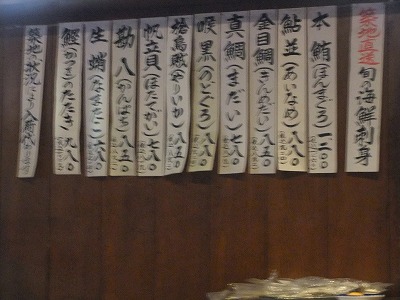 築地直送 旬の海鮮刺身
本鮪(ほんまぐろ)一二〇〇
鮎並(あいなめ)八八〇
金目鯛(きんめだい)八五〇
真鯛(まだい)七八〇
喉黒(のどくろ)八八〇
槍烏賊(やりいか)八五〇
帆立貝(ほたてがい)七八〇
勘八(かんぱち)八五〇
生蛸(なまだこ)六八〇
鰹(かつお)のたたき 九八〇
築地の状況により入荷